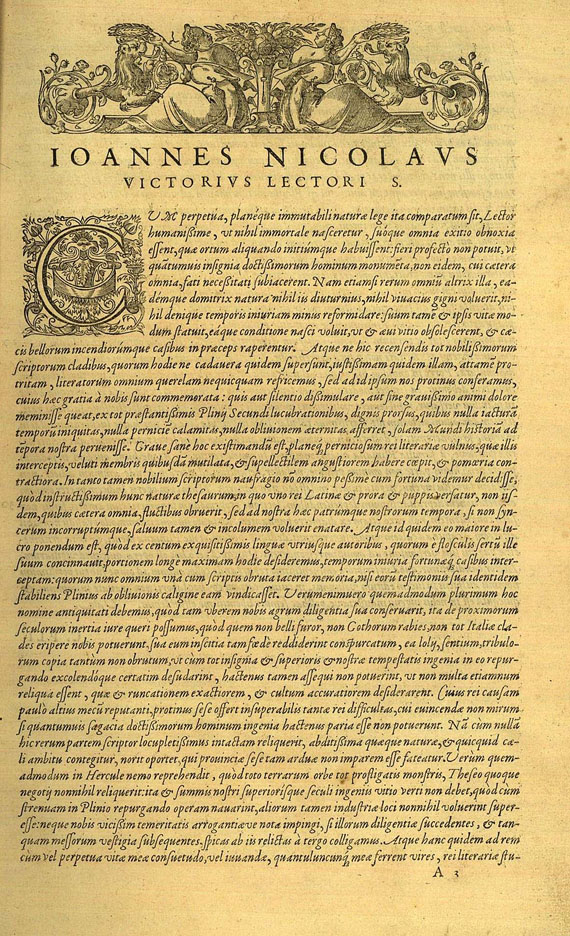 IOANNES NICOLAVS
VICTORIVS LECTORI S.
CVM perpetua, planéque immutabili naturæ lege ita comparatum sit, Lector
humanißime, vt nihil immortale nasceretur, suóque omnia exitio obnoxia
essent, quæ ortum aliquando initiumque habuissent: fieri profecto non potuit, vt
quātumuis insignia doctißimorum hominum monumēta, non eidem, cui cætera
omnia, fati necessitati subiacerent. Nam etiamsi rerum omniū altrix illa, ea-
démque domitrix natura nihil iis diuturnius, nihil viuacius gigni voluerit, ni-
hil denique temporis iniuriam minus reformidare: suum tamē & ipsis vitæ mo-
dum statuit, eáque conditione nasci voluit, vt & æui vitio obsolescerent, & cæ-
cis bellorum incendiorúmque casibus in præceps raperentur. Atque ne hic recensendis tot nobilißimorum
scriptorum cladibus, quorum hodie ne cadauera quidem supersunt, iustißimam quidem illam, attamē pro-
tritam, literatorum omnium querelam nequicquam refricemus, sed ad id ipsum nos protinus conferamus,
cuius hæc gratia à nobis sunt commemorata: quis aut silentio dißimulare, aut sine grauißimo animi dolore
meminisse queat, ex tot præstantißimis Plinij Secundi lucubrationibus, dignis prorsus, quibus nulla iacturā
temporū iniquitas, nulla perniciē calamitas, nulla obliuionem æternitas afferret, solam Mundi historiā ad
tēpora nostra peruenisse. Graue sane hoc existimandū est, planeq; perniciosum rei literariæ vulnus, quæ illis
interceptis, veluti membris quibusdā mutilata, & supellectilem angustiorem habere cœpit, & pomœria con-
tractiora. In tanto tamen nobilium scriptorum naufragio non omnino peßime cum fortuna videmur decidisse,
quòd instructißimum hunc naturæ thesaurum, in quo vno rei Latinæ & prora & puppis versatur, non iis-
dem, quibus cætera omnia, fluctibus obruerit, sed ad nostra hæc patrúmque nostrorum tempora, si non syn-
cerum incorruptúmque, saluum tamen & incolumem voluerit enatare. Atque id quidem eo maiore in lu-
cro ponendum est, quòd ex centum exquisitißimis linguæ vtriusque autoribus, quorum è flosculis sertū ille
suum concinnauit, portionem longe maximam hodie desideremus, temporum iniuria fortunæq; casibus inter-
ceptam: quorum nunc omnium vnà cum scriptis obruta iaceret memoria, nisi eorū testimoniis sua identidem
stabiliens Plinius ab obliuionis caligine eam vindicasset. Verumenimuero quemadmodum plurimum hoc
nomine antiquitati debemus, quòd tam vberem nobis agrum diligentia sua conseruarit, ita de proximorum
seculorum inertia iure queri possumus, quòd quem non belli furor, non Gothorum rabies, non tot Italiæ cla-
des eripere nobis potuerunt, sua eum inscitia tam fœdè reddiderint conspurcatum, ea lolij, sentium, tribulo-
rum copia tantùm non obrutum, vt cùm tot insignia & superioris & nostræ tempestatis ingenia in eo repur-
gando excolendóque certatim desudarint, hactenus tamen assequi non potuerint, vt non multa etiamnum
reliqua essent, quæ & runcationem exactiorem, & cultum accuratiorem desiderarent. Cuius rei causam
paulò altius mecū reputanti, protinus sese offert insuperabilis tantæ rei difficultas, cui euincendæ non mirum
si quantumuis sagacia doctißimorum hominum ingenia hactenus paria esse non potuerunt. Nā cùm nullā
hic rerum partem scriptor locupletißimus intactam reliquerit, abditißima quæque naturæ, & quicquid cæ-
li ambitu contegitur, norit oportet, qui prouinciæ sese tam arduæ non imparem esse fateatur. Verùm quem-
admodum in Hercule nemo reprehendit, quòd toto terrarum orbe tot profligatis monstris, Theseo quoque
negotij nonnihil reliquerit: ita & summis nostri superiorísque seculi ingeniis vitio verti non debet, quòd cùm
strenuam in Plinio repurgando operam nauarint, aliorum tamen industriæ loci nonnihil voluerint super-
esse: neque nobis vicißim temeritatis arrogantiæve notā impingi, si illorum diligentiæ succedentes, & tan-
quam messorum vestigia subsequentes, spicas ab iis relictas à tergo colligamus. Atque hanc quidem ad rem
cùm vel perpetua vitæ meæ consuetudo, vel iuuandæ, quantuluncunq; meæ ferrent vires, rei literariæ stu-
A 3